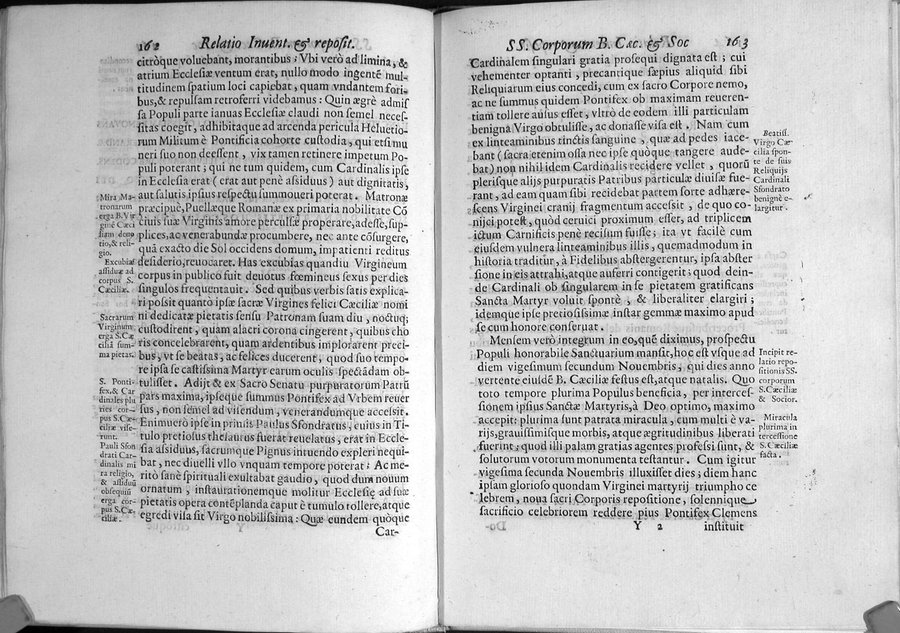 162 Relatio Inuent. & reposit.
citròque voluebant, morantibus; Vbi verò ad limina, &
atrium Ecclesiæ ventum erat, nullo modo ingentē mul-
titudinem spatium loci capiebat, quam vndantem fori-
bus, & repulsam retroferri videbamus: Quin ægrè admis
sa Populi parte ianuas Ecclesiæ claudi non semel neces-
sitas coegit, adhibitaque ad arcenda pericula Heluetio-
rum Militum è Pontificia cohorte custodia, qui etsi mu
neri suo non deessent, vix tamen retinere impetum Po-
puli poterant; qui ne tum quidem, cum Cardinalis ipse
in Ecclesia erat (erat aut penè assiduus) aut dignitatis,
aut salutis ipsius respectu summoueri poterat. Matronæ
præcipuè, Puellæque Romanæ ex primaria nobilitate Cō
ciuis suæ Virginis amore perculsæ properare, adesse, sup-
plices, ac venerabundæ procumbere, nec ante cōsurgere,
quā exacto die Sol occidens domum, impatienti reditus
desiderio, reuocaret. Has excubias quandiu Virgineum
corpus in publico fuit deuotus fœmineus sexus per dies
singulos frequentauit. Sed quibus verbis satis explica-
ri possit quanto ipsæ sacræ Virgines felici Cæciliæ nomi
ni dedicatæ pietatis sensu Patronam suam diu, noctuq;
custodirent, quam alacri corona cingerent, quibus cho
ris concelebrarent, quam ardentibus implorarent preci
bus, vt se beatas, ac felices ducerent, quod suo tempo-
re ipsa se castissima Martyr earum oculis spectādam ob-
tulisset. Adijt & ex Sacro Senatu purpuratorum Patrū
pars maxima, ipseque summus Pontifex ad Vrbem reuer
sus, non semel ad visendum, venerandumque accessit.
Enimuerò ipse in primis Paulus Sfondratus, cuius in Ti-
tulo pretiosus thesaurus fuerat reuelatus, erat in Eccle-
sia assiduus, sacrumque Pignus intuendo expleri nequi-
bat, nec diuelli vllo vnquam tempore poterat; Ac me-
ritò sanè spirituali exultabat gaudio, quod dum nouum
ornatum, instaurationemque molitur Ecclesię ad suæ
pietatis opera contēplanda caput è tumulo tollere, atque
egredi visa sit Virgo nobilissima: Quæ eundem quòque
Car-
Mira Ma-
tronarum
erga B. Vir
ginē Cæci
liam deuo
tio, & reli-
gio.
Excubiæ
assiduæ ad
corpus S.
Cæciliæ.
Sacrarum
Virginum
erga S. Cæ
ciliā sum-
ma pietas.
S. Ponti-
fex, & Car
dinales plu
ries cor-
pus S. Cæ-
ciliæ vise-
runt.
Pauli Sfon
drati Car-
dinalis mi
ra religio,
& assiduū
obsequiū
erga cor-
pus S. Cæ-
ciliæ.
SS. Corporum B. Cæc. & Soc 163
Cardinalem singulari gratia prosequi dignata est; cui
vehementer optanti, precantique sæpius aliquid sibi
Reliquiarum eius concedi, cum ex sacro Corpore nemo,
ac ne summus quidem Pontifex ob maximam reueren-
tiam tollere ausus esset, vltrò de eodem illi particulam
benigna Virgo obtulisse, ac donasse visa est. Nam cum
ex linteaminibus tinctis sanguine, quæ ad pedes iace-
bant (sacra etenim ossa nec ipse quòque tangere aude-
bat) non nihil idem Cardinalis recidere vellet, quorū
plerisque alijs purpuratis Patribus particulæ diuisæ fue-
rant, ad eam quam sibi recidebat partem forte adhære-
scens Virginei cranij fragmentum accessit, de quo co-
nijci potest, quòd ceruici proximum esset, ad triplicem
ictum Carnificis penè recisum fuisse; ita vt facilè cum
eiusdem vulnera linteaminibus illis, quemadmodum in
historia traditur, à Fidelibus abstergerentur, ipsa abster
sione in eis attrahi, atque auferri contigerit; quod dein-
de Cardinali ob singularem in se pietatem gratificans
Sancta Martyr voluit spontè, & liberaliter elargiri;
idemque ipse pretiosissimæ instar gemmæ maximo apud
se cum honore conseruat.
Mensem verò integrum in eo, quē diximus, prospectu
Populi honorabile Sanctuarium mansit, hoc est vsque ad
diem vigesimum secundum Nouembris, qui dies anno
vertente eiusdē B. Cæciliæ festus est, atque natalis. Quo
toto tempore plurima Populus beneficia, per interces-
sionem ipsius Sanctæ Martyris, à Deo optimo, maximo
accepit: plurima sunt patrata miracula, cum multi è va-
rijs, grauissimisque morbis, atque ægritudinibus liberati
fuerint; quod illi palam gratias agentes professi sunt, &
solutorum votorum monumenta testantur. Cum igitur
vigesima secunda Nouembris illuxisset dies; diem hanc
ipsam glorioso quondam Virginei martyrij triumpho ce
lebrem, noua sacri Corporis repositione, solennique
sacrificio celebriorem reddere pius Pontifex Clemens
Y 2 instituit
Beatiss.
Virgo Cæ-
cilia spon-
te de suis
Reliquijs
Cardinali
Sfondrato
benignè e-
largitur.
Incipit re-
latio repo-
sitionis SS.
corporum
S. Cæciliæ
& Socior.
Miracula
plurima in
tercessione
S. Cæciliæ
facta.